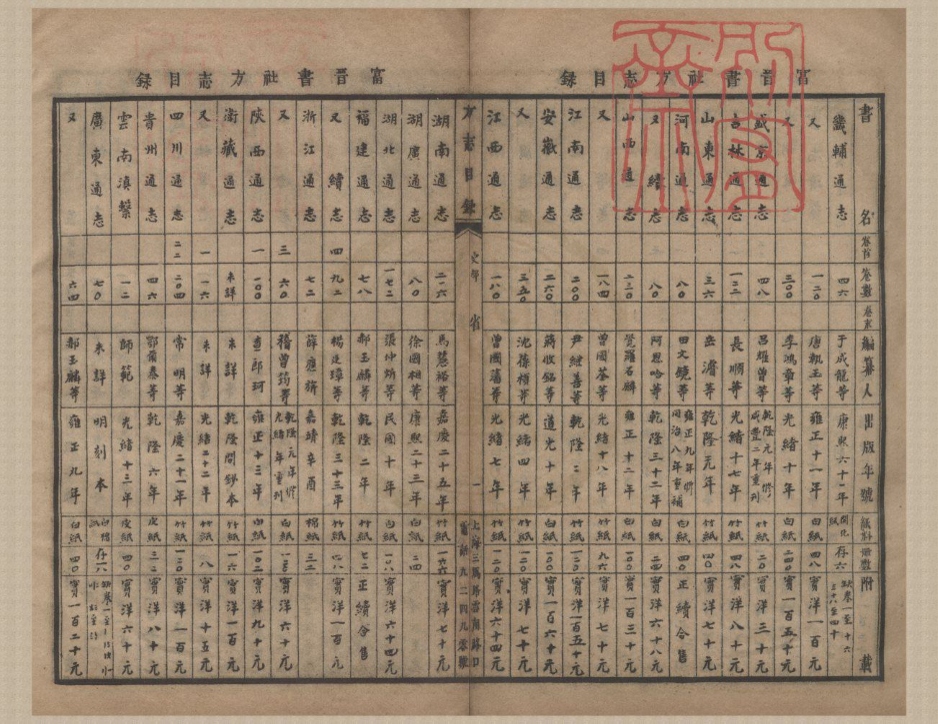 富晉書社方志目錄
書名 卷首 卷數 卷末 編纂人 出版年號 紙料 冊數 附載
畿輔通志 四六 于成龍等 康熙六十一年
又 一二〇 唐執玉等 雍正十一年 白紙 四八 實洋一百元
又 三〇〇 李鴻章等 光緒十年 白紙 二四〇 實洋一百五十元
盛京通志 四八 呂耀曾等 乾隆元年修 咸豐二年重刊 竹紙 二〇 實洋三十元
吉林通志 一二二 長順等 光緒十七年 竹紙 四八 實洋八十元
山東通志 三六 岳濬等 乾隆元年 竹紙 四〇 實洋七十元
河南通志 八〇 田文鏡等 雍正九年修 同治八年重補 白紙 四〇 正續合售
又續 八〇 阿思哈等 乾隆三十二年 竹紙 二四 實洋六十八元
山西通志 二三〇 覺羅石麟 雍正十二年 白紙 一〇〇 實一百三十元
又 一八四 曾國荃等 光緒十八年 竹紙 九六 實洋七十元
江南通志 二〇〇 尹繼善等 乾隆二年 竹紙 一〇〇 實洋一百五十元
安徽通志 二六〇 蔣攸銛等 道光十年 竹紙 實一百六十元
又 三五〇 沈葆楨等 光緒四年 竹紙 一二〇 實洋七十元
江西通志 一八〇 曾國藩等 光緒七年 竹紙 一二〇 實洋六十四元
方志目錄 史部 省 一
上海三馬路雲南路口
電話九二四九零號
富晉書社方志目錄
湖南通志 二一六 馬慧裕等 嘉慶二十五年 竹紙 一六六 實洋七十元
湖廣通志 八〇 徐國相等 康熙二十三年 白紙 二四
湖北通志 一七二 張仲炘等 民國十年 白紙 一〇〇 實洋六十四元
福建通志 七八 郝玉麟等 乾隆二年 竹紙 七二 正續合售
又續 四 九二 楊廷璋等 乾隆三十三年 竹紙 實洋一百元
浙江通志 七二 薛應旂 嘉靖辛酉 棉紙 三二
又 三 六〇 嵇曾筠等 乾隆元年修 光緒年重刊 白紙 一二〇 實洋六十元
陝西通志 一 一〇〇 查郎阿 雍正十三年 白紙 一〇二 實洋九十元
衛藏通志 未詳 未詳 乾隆間鈔本 竹紙 一六 實洋一百元
又 一 一六 未詳 光緒二十二年 竹紙 八 實洋十五元
四川通志 二二 二〇四 常明等 嘉慶二十一年 竹紙 一二〇 實洋一百元
貴州通志 四六 鄂爾泰等 乾隆六年 皮紙 三二 實洋八十元
雲南滇繫 一二 師範 光緒十三年 皮紙 四〇 實洋六十元
廣東通志 七〇 未詳 明刻本 存一八
又 六四 郝玉麟等 雍正九年 白紙 四〇 實一百二十元